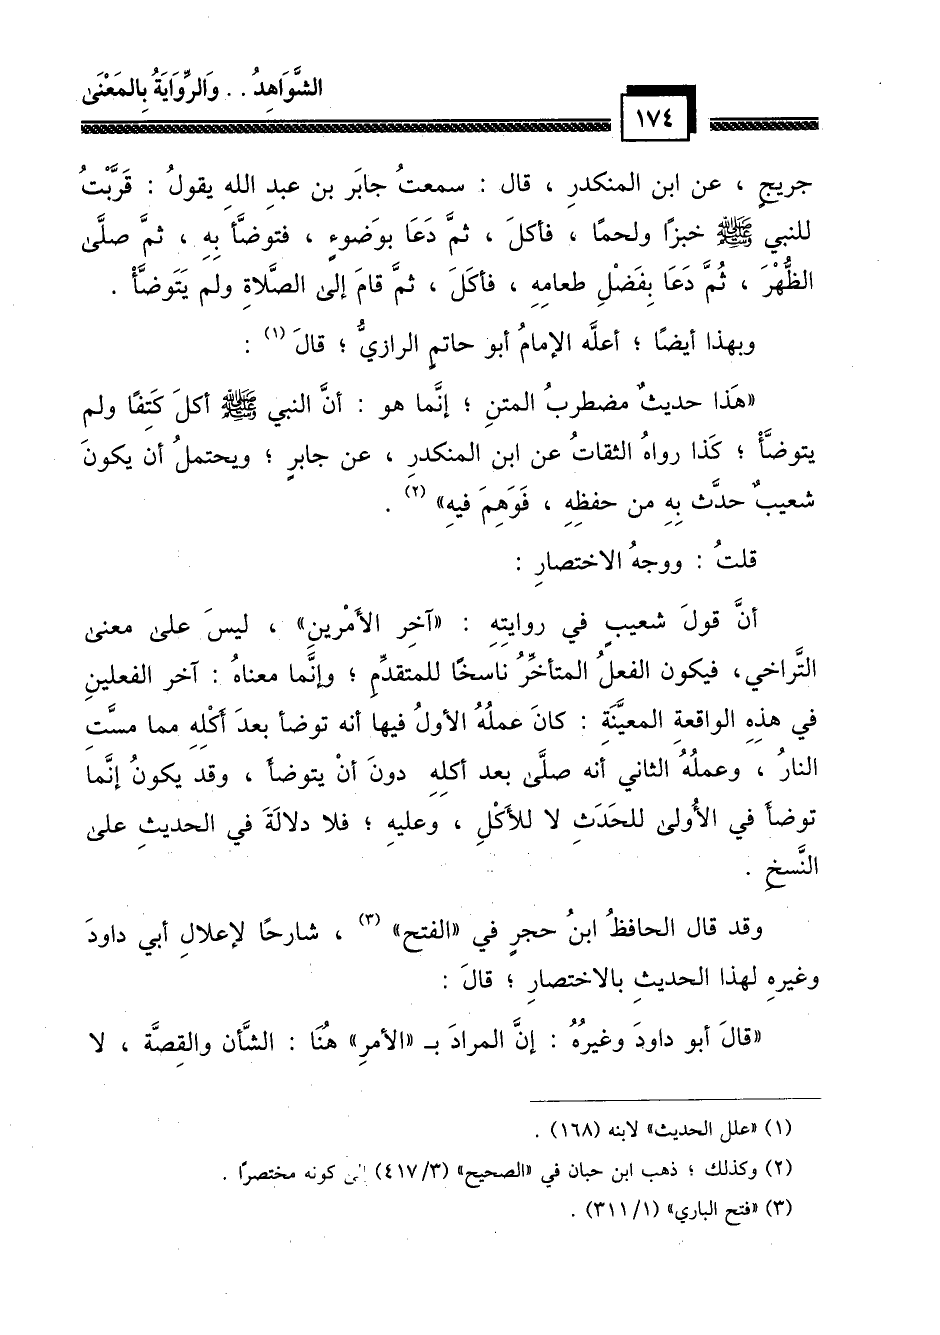 الشَّوَاهِدُ . . وَالرِّوَايَةُ بِالمَعْنَىٰ
١٧٤
جريجٍ ، عن ابن المنكدرِ ، قال : سمعتُ جابَر بن عبدِ اللهِ يقولُ : قَرَّبْتُ
للنبي ﷺ خبزًا ولحمًا ، فأكلَ ، ثمَّ دَعَا بوَضوءٍ ، فتوضَّأ بِهِ ، ثمَّ صلَّى
الظُّهْرَ ، ثُمَّ دَعَا بِفَضْلِ طعامِهِ ، فأكَلَ ، ثمَّ قامَ إلىٰ الصَّلاةِ ولم يَتَوضَّأْ .
وبهذا أيضًا ؛ أعلَّه الإمامُ أبو حاتمٍ الرازيُّ ؛ قالَ (١) :
«هَذا حديثٌ مضطربُ المتنِ ؛ إنَّما هو : أنَّ النبي ﷺ أكلَ كَتِفًا ولم
يتوضَّأْ ؛ كَذا رواهُ الثقاتُ عن ابن المنكدرِ ، عن جابرٍ ؛ ويحتملُ أن يكونَ
شعيبٌ حدَّث بِهِ من حفظِهِ ، فَوَهِمَ فيهِ» (٢) .
قلتُ : ووجهُ الاختصارِ :
أنَّ قولَ شعيبٍ في روايتِهِ : «آخرِ الأَمْرينِ» ، ليسَ علىٰ معنىٰ
التَّراخي، فيكون الفعلُ المتأخِّرُ ناسخًا للمتقدِّمِ ؛ وإنَّما معناهُ : آخر الفعلينِ
في هذِهِ الواقعةِ المعيَّنَةِ : كانَ عملُهُ الأولُ فيها أنه توضأ بعدَ أَكْلِهِ مما مسَّتِ
النارُ ، وعملُهُ الثاني أنه صلَّى بعد أكلِهِ دونَ أنْ يتوضأَ ، وقد يكونُ إنَّما
توضأَ في الأُولىٰ للحَدَثِ لا للأَكْلِ ، وعليهِ ؛ فلا دلالَةَ في الحديثِ علىٰ
النَّسخِ .
وقد قال الحافظُ ابنُ حجرٍ في «الفتح» (٣) ، شارحًا لإعلالِ أبي داودَ
وغيرِهِ لهذا الحديثِ بالاختصارِ ؛ قالَ :
«قالَ أبو داودَ وغيرُهُ : إنَّ المرادَ بـ «الأمرِ» هُنَا : الشَّأن والقِصَّة ، لا
(١) «علل الحديث» لابنه (١٦٨) .
(٢) وكذلك ؛ ذهب ابن حبان في «الصحيح» (٤١٧/٣) إلى كونه مختصرًا .
(٣) «فتح الباري» (٣١١/١) .